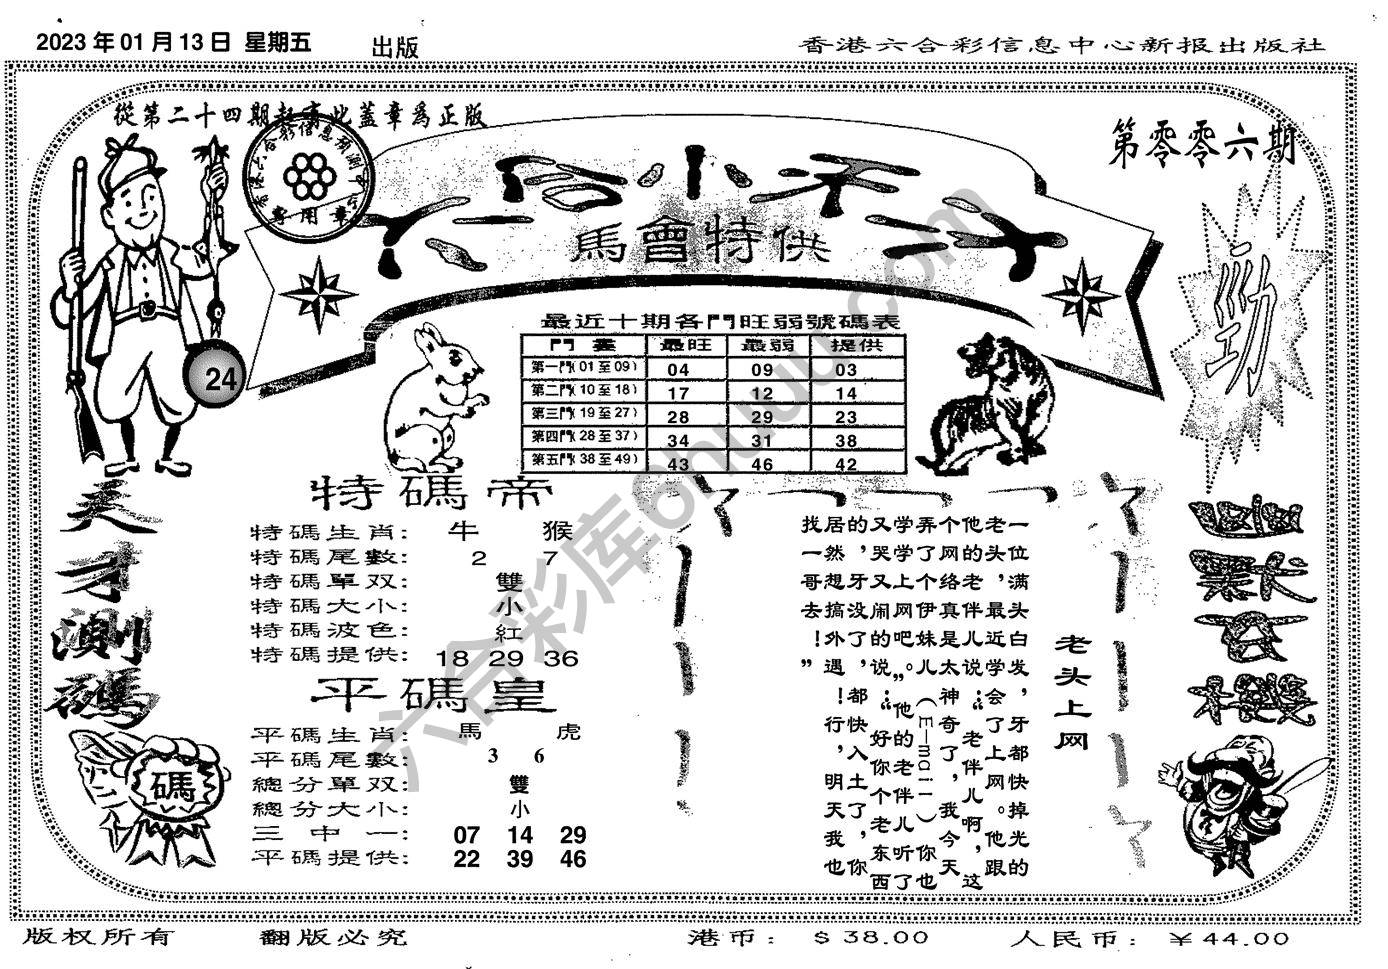 2023 年 01 月 13 日 星期五 出版
香港六合彩信息中心新报出版社
從第二十四期起憲此蓋章爲正版
香港六合彩信息預測
專用章
第零零六期
六合小天才
馬會特供
勁
24
最近十期各門旺弱號碼表
門 最旺 最弱 提供
第一門(01至09) 04 09 03
第二門(10至18) 17 12 14
第三門(19至27) 28 29 23
第四門(28至37) 34 31 38
第五門(38至49) 43 46 42
天才測碼
碼
特碼帝
特碼生肖: 牛 猴
特碼尾數: 2 7
特碼單双: 雙
特碼大小: 小
特碼波色: 紅
特碼提供: 18 29 36
平碼皇
平碼生肖: 馬 虎
平碼尾數: 3 6
總分單双: 雙
總分大小: 小
三中一: 07 14 29
平碼提供: 22 39 46
老头上网
一位满头白发，牙都快掉光的
老头，最近学会了上网。他跟
他的老伴儿说：“老伴儿啊，这
个网络真是太神奇了，我今天
弄了个伊妹儿（E—mail）你也
学学上网吧。”他的老伴儿听了
又哭又闹的说：“好你个老东西
的，牙没了，都快入土了，你
居然想搞外遇！行，明天我也
找一哥去！”
幽默玄機
六合彩库6huuu.com
版权所有 翻版必究 港币: $ 38.00 人民币: ￥ 44.00